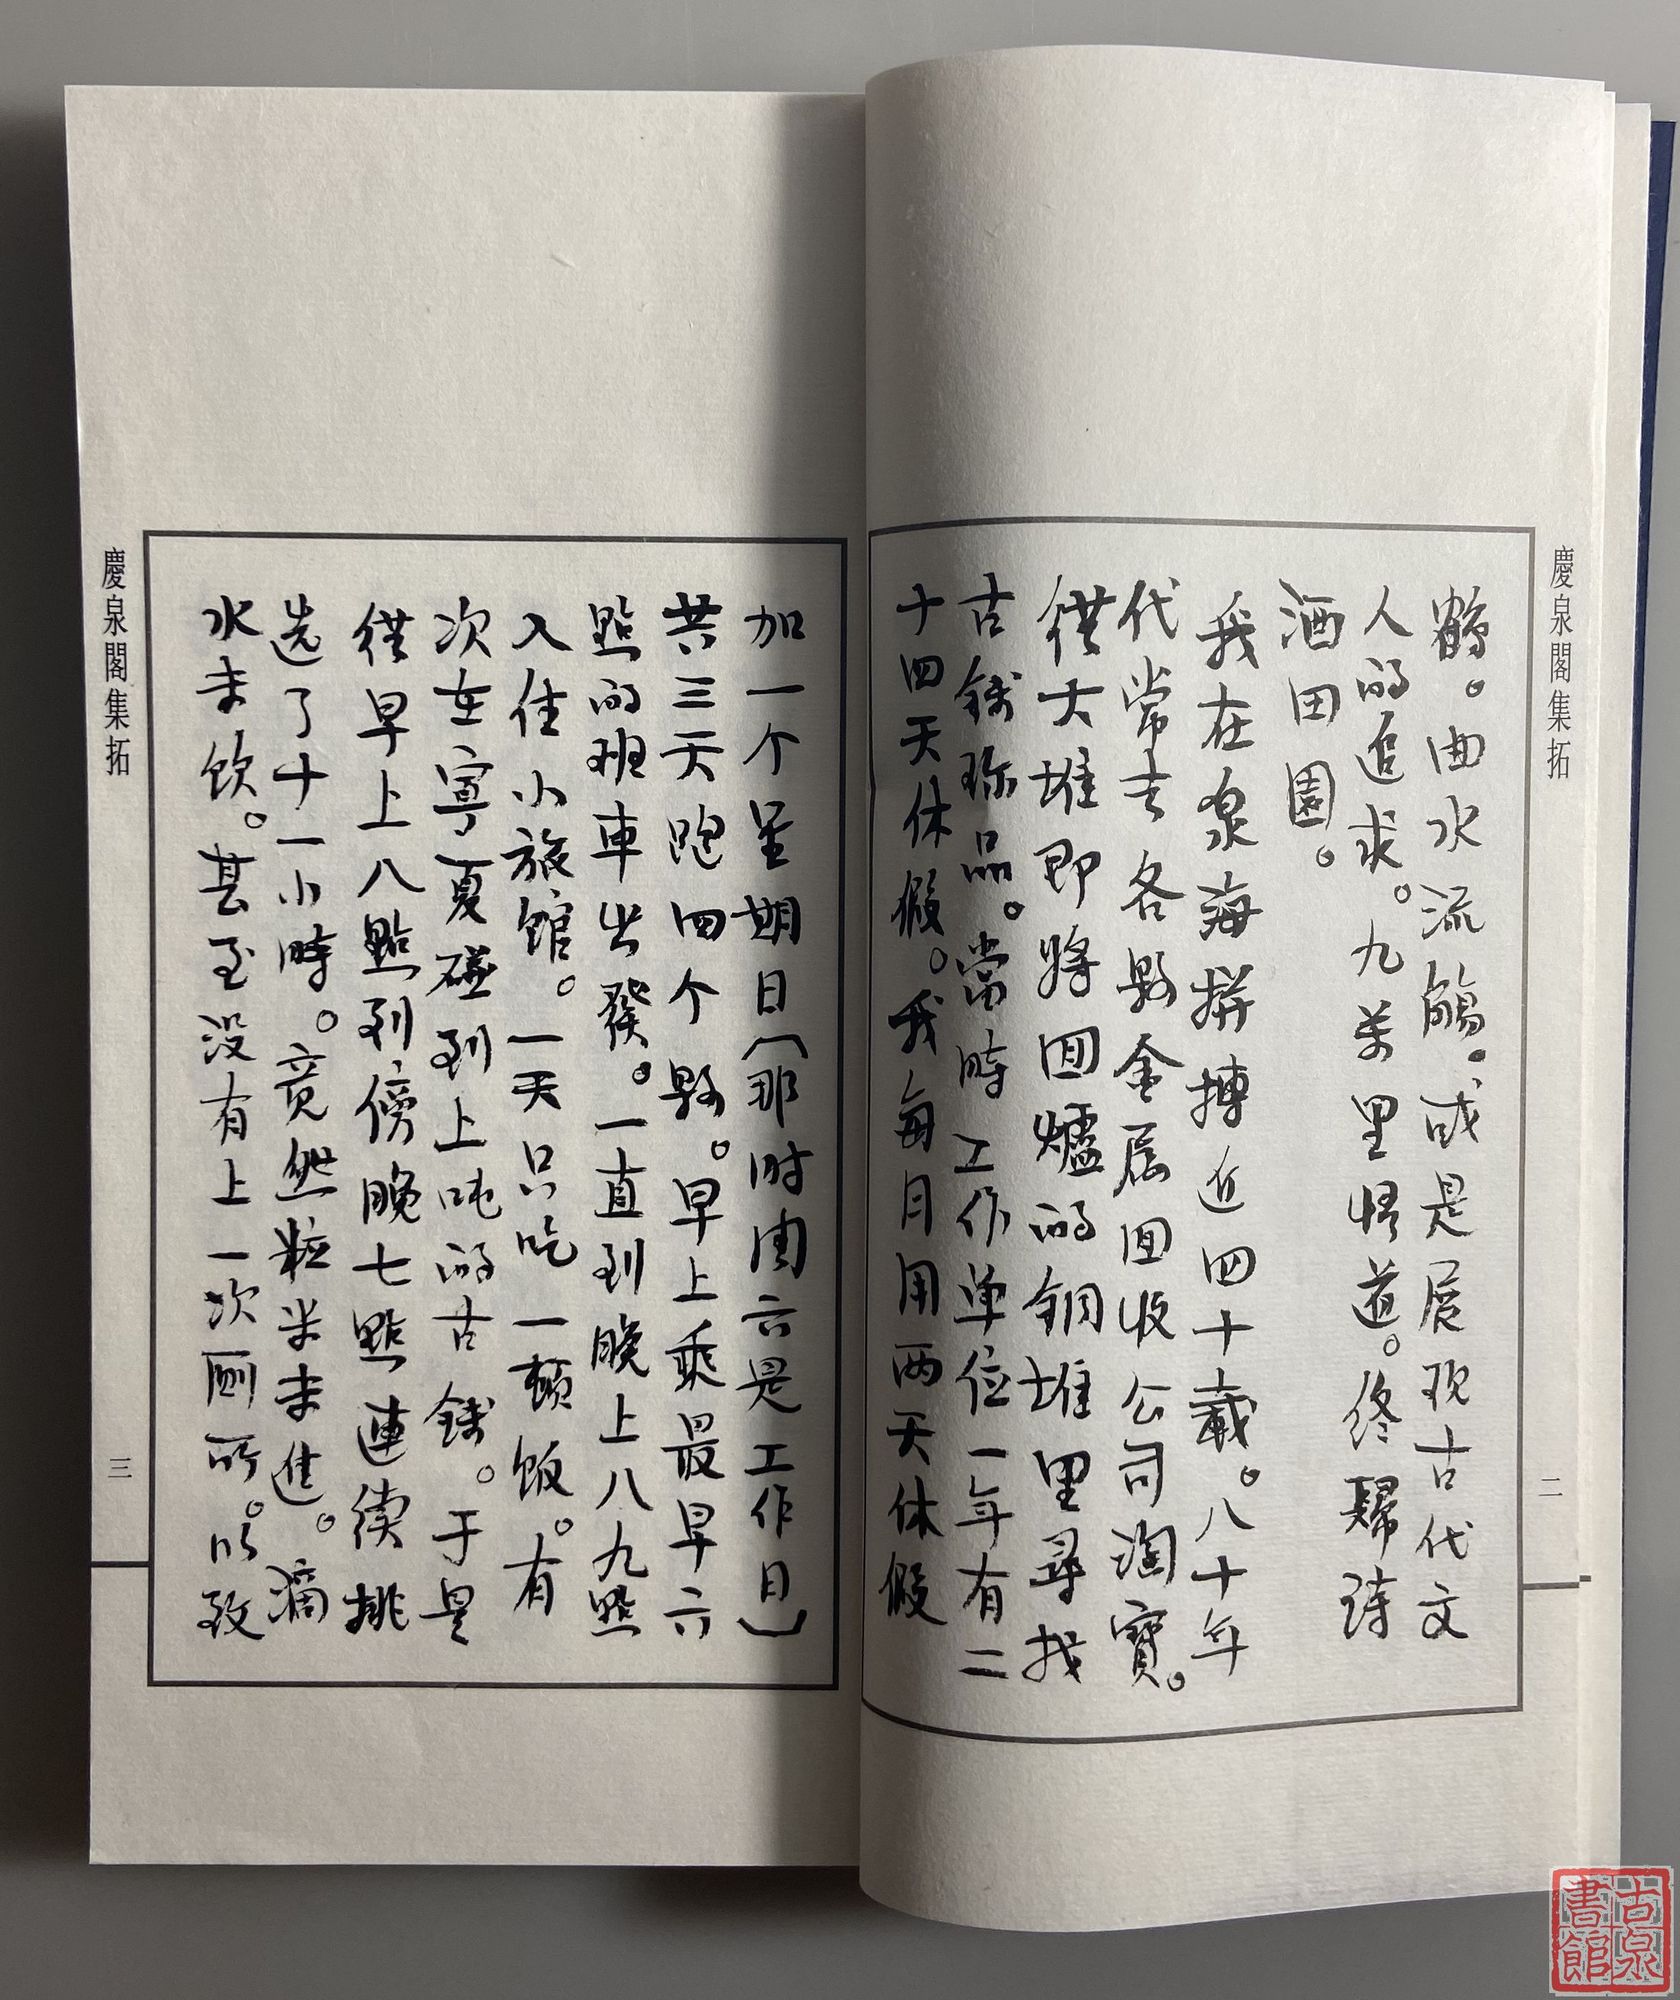 慶泉閣集拓
二
鶴。曲水流觴。或是展現古代文
人的追求。九萬里悟道。終歸詩
酒田園。
我在泉海拼搏近四十載。八十年
代常去各縣金属回收公司淘寶。
從大堆即將回爐的銅堆里尋找
古錢珍品。當時工作单位一年有二
十四天休假。我每月用两天休假
加一个星期日(那时周六是工作日)
共三天跑四个縣。早上乘最早六
點的班車出發。一直到晚上八九點
入住小旅馆。一天只吃一頓飯。有
次在寧夏碰到上吨的古錢。于是
從早上八點到傍晚七點連續挑
选了十一小時。竟然粒米未進。滴
水未飲。甚至没有上一次厕所。以致
慶泉閣集拓
三
古泉
書館